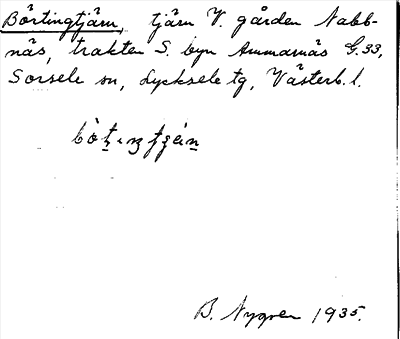 Börtingtjärn, tjärn V. gården Nabb-
näs, trakten S. byn Ammarnäs G.33,
Sorsele sn, Lycksele tg, Västerb. l.
B. Nygren 1935.